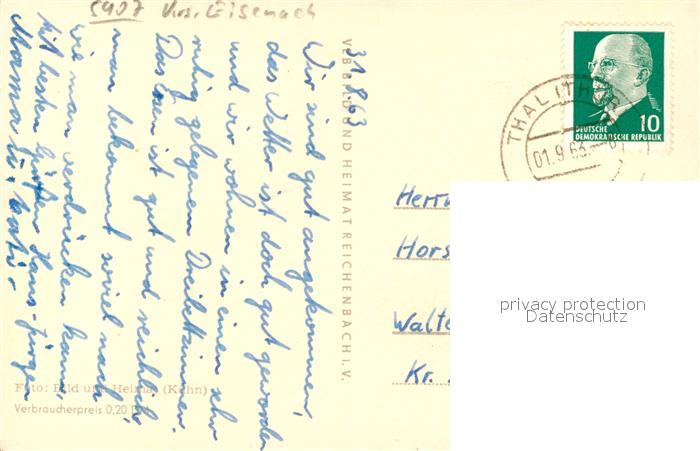 5907 Krs. Eisenach
31.8.63
Wir sind gut angekommen,
das Wetter ist doch gut geworden
und wir wohnen in einen sehr
ruhig gelegenem Dreibettzimmer.
Das Essen ist gut und reichlich,
man bekommt soviel nach
wie man verdrücken kann.
Mit besten Grüßen Hans-Jürgen
Mama u. Vati.
VEB BILD UND HEIMAT REICHENBACH I. V.
Foto: Bild und Heimat (Kühn)
Verbraucherpreis 0,20 DM
THAL (THÜR
01.9.63
10
DEUTSCHE
DEMOKRATISCHE REPUBLIK
Herrn
Hors
Walte
Kr.
privacy protection
Datenschutz